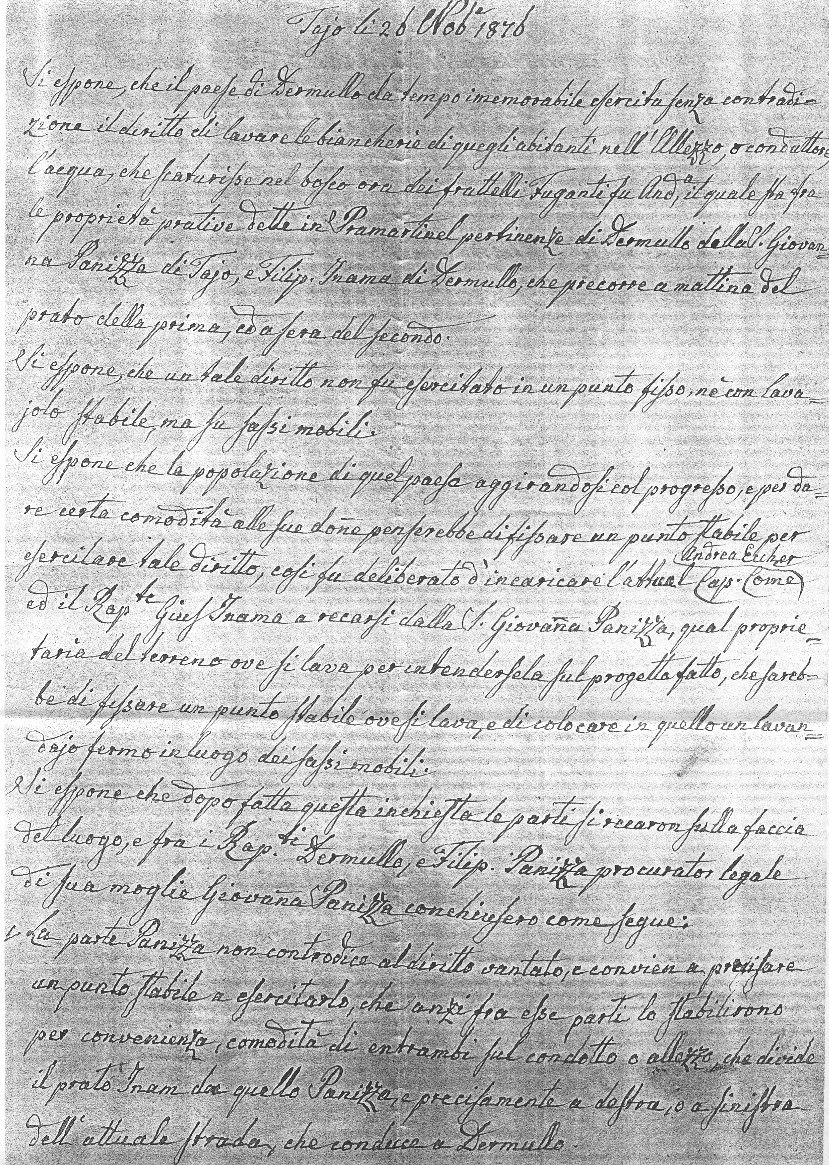 Tajo li 26 Nob.e 1876
Si espone, che il paese di Dermullo da tempo imemorabile esercita senza contradi=
zione il diritto di lavare le biancherie di quegli abitanti nell'Allezzo, o conduttore
l'acqua, che scaturisse nel bosco ora dei frattelli Fuganti fu And.a, il quale sta fra
le proprietà prative dette in Pramartinel pertinenze di Dermullo della S. Giovan=
na Panizza di Tajo, e Filip. Inama di Dermullo, che precorre a mattina del
prato della prima, ed a sera del secondo.
Si espone, che un tale diritto non fu esercitato in un punto fisso, nè con lava=
jolo stabile, ma su sassi mobili.
Si espone che la popolazione di quel paese aggirandosi col progresso, e per da=
re certa comodità alle sue done penserebbe di fissare un punto stabile per
Andrea Eccher
esercitare tale diritto, cosi fu deliberato d'incaricare l'attual Cap. Come
ed il Rap.te Gius Inama a recarsi dalla S. Giovana Panizza, qual proprie=
taria del terreno ove si lava per intendersela sul progetto fatto, che sareb=
be di fissare un punto stabile ove si lava, e di colocare in quello un lavan=
dajo fermo in luogo dei sassi mobili.
Si espone che dopo fatta questa inchiesta le parti si recaron sulla faccia
del luogo, e fra i Rap.ti Dermullo, e Filip. Panizza procurator legale
di sua moglie Giovana Panizza conchiusero come segue:
1 La parte Panizza non controdice al diritto vantato, e convien a precisare
un punto stabile a esercitarlo, che anzi fra esse parti lo stabilirono
per convenienza, comodità di entrambi sul condotto o allezzo, che divide
il prato Inam da quello Panizza, e precisamente a destra, o a sinistra
dell'attuale strada, che conduce a Dermullo.